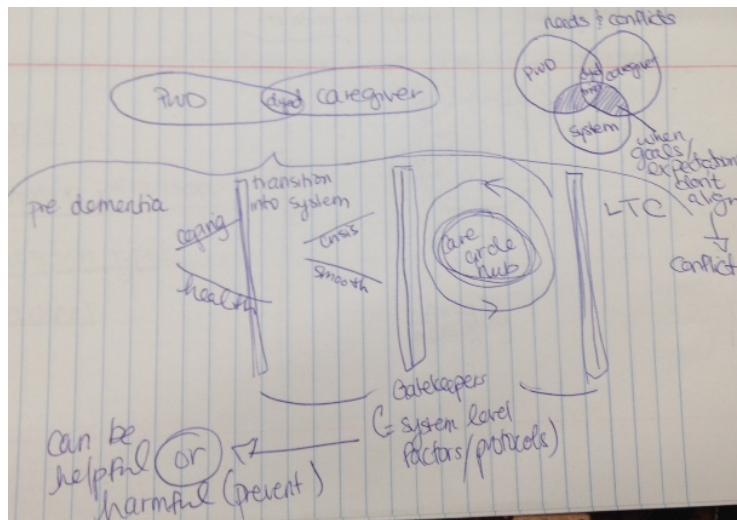 needs & conflicts
PWD dyad caregiver
PWD dyad caregiver
system
when
goals/
expectations
don't
align
conflict
pre dementia
transition
into system
aging
health
crisis
smooth
care
circle
hub
LTC
Gatekeepers
(= system level
factors/protocols)
can be
helpful or
harmful (prevent)